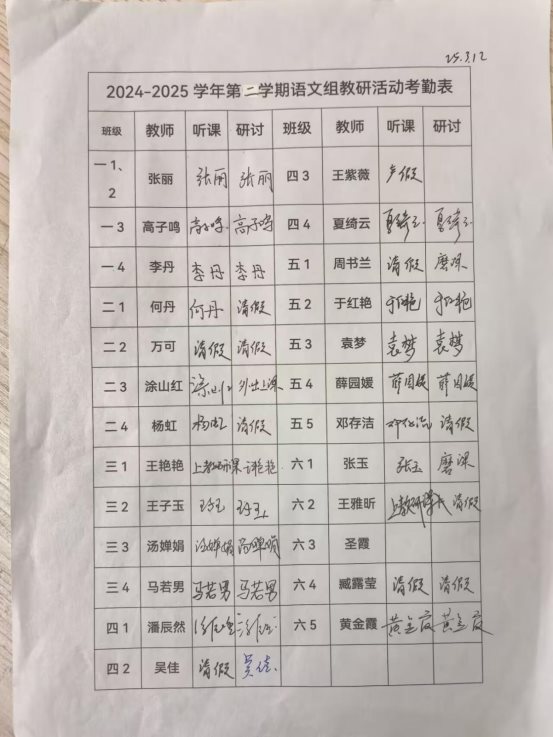 25.3.12
2024-2025 学年第二学期语文组教研活动考勤表
班级 教师 听课 研讨 班级 教师 听课 研讨
一1、2 张丽 张丽 张丽 四3 王紫薇 产假
一3 高子鸣 高子鸣 高子鸣 四4 夏绮云 夏绮云 夏绮云
一4 李丹 李丹 李丹 五1 周书兰 请假 磨课
二1 何丹 何丹 请假 五2 于红艳 于红艳 于红艳
二2 万可 请假 请假 五3 袁梦 袁梦 袁梦
二3 涂山红 涂山红 外出上课 五4 薛园媛 薛园媛 薛园媛
二4 杨虹 杨虹 请假 五5 邓存洁 邓存洁 请假
三1 王艳艳 上教研课 六1 张玉 张玉 磨课
三2 王子玉 子玉 子玉 六2 王雅昕 上教研课 请假
三3 汤婵娟 汤婵娟 汤婵娟 六3 圣霞
三4 马若男 马若男 马若男 六4 臧露莹 请假 请假
四1 潘辰然 六5 黄金霞 黄金霞 黄金霞
四2 吴佳 请假 吴佳